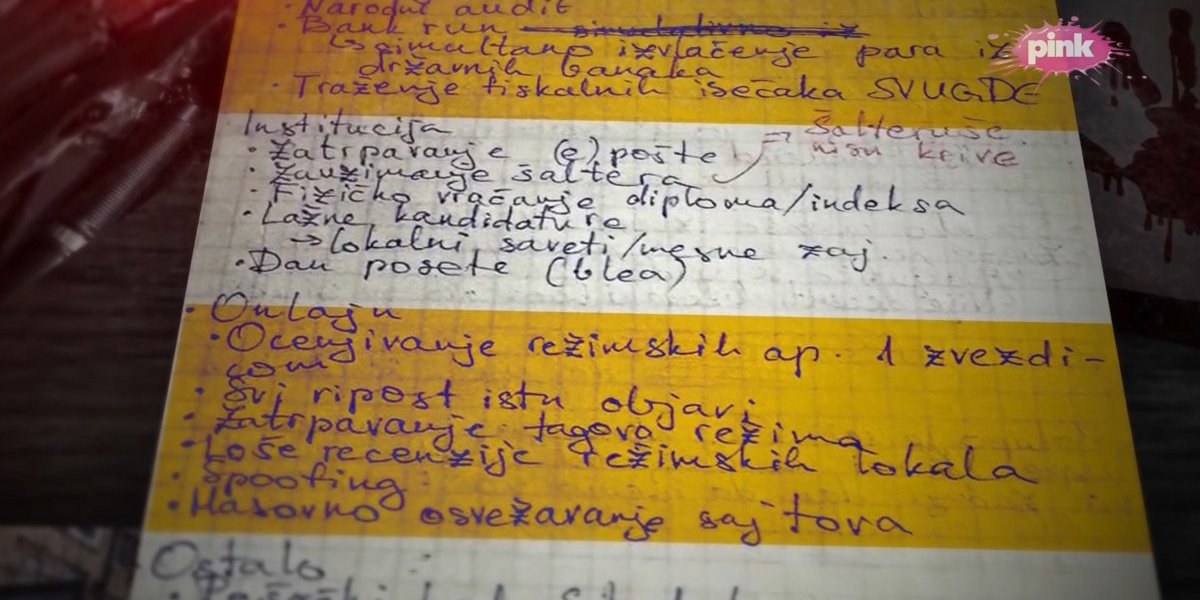 · Narodni audit
· Bank run simultativno iz
↳ simultano izvlačenje para iz
državnih banaka
· Traženje fiskalnih isečaka SVUGDE
pink
Institucija
· Zatrpavanje (e)pošte → Šalteruše
nisu krive
· Zauzimanje šaltera
· Fizičko vraćanje diploma/indeksa
· Lažne kandidature
→ lokalni saveti/mesne zaj.
· Dan posete (blea)
· Onlajn
· Ocenjivanje režimskih ap. 1 zvezdi-
com
· Svi ripost istu objavi
· Zatrpavanje tagova režima
· Loše recenzije režimskih lokala
· Spoofing
· Masovno osvežavanje sajtova
Ostalo